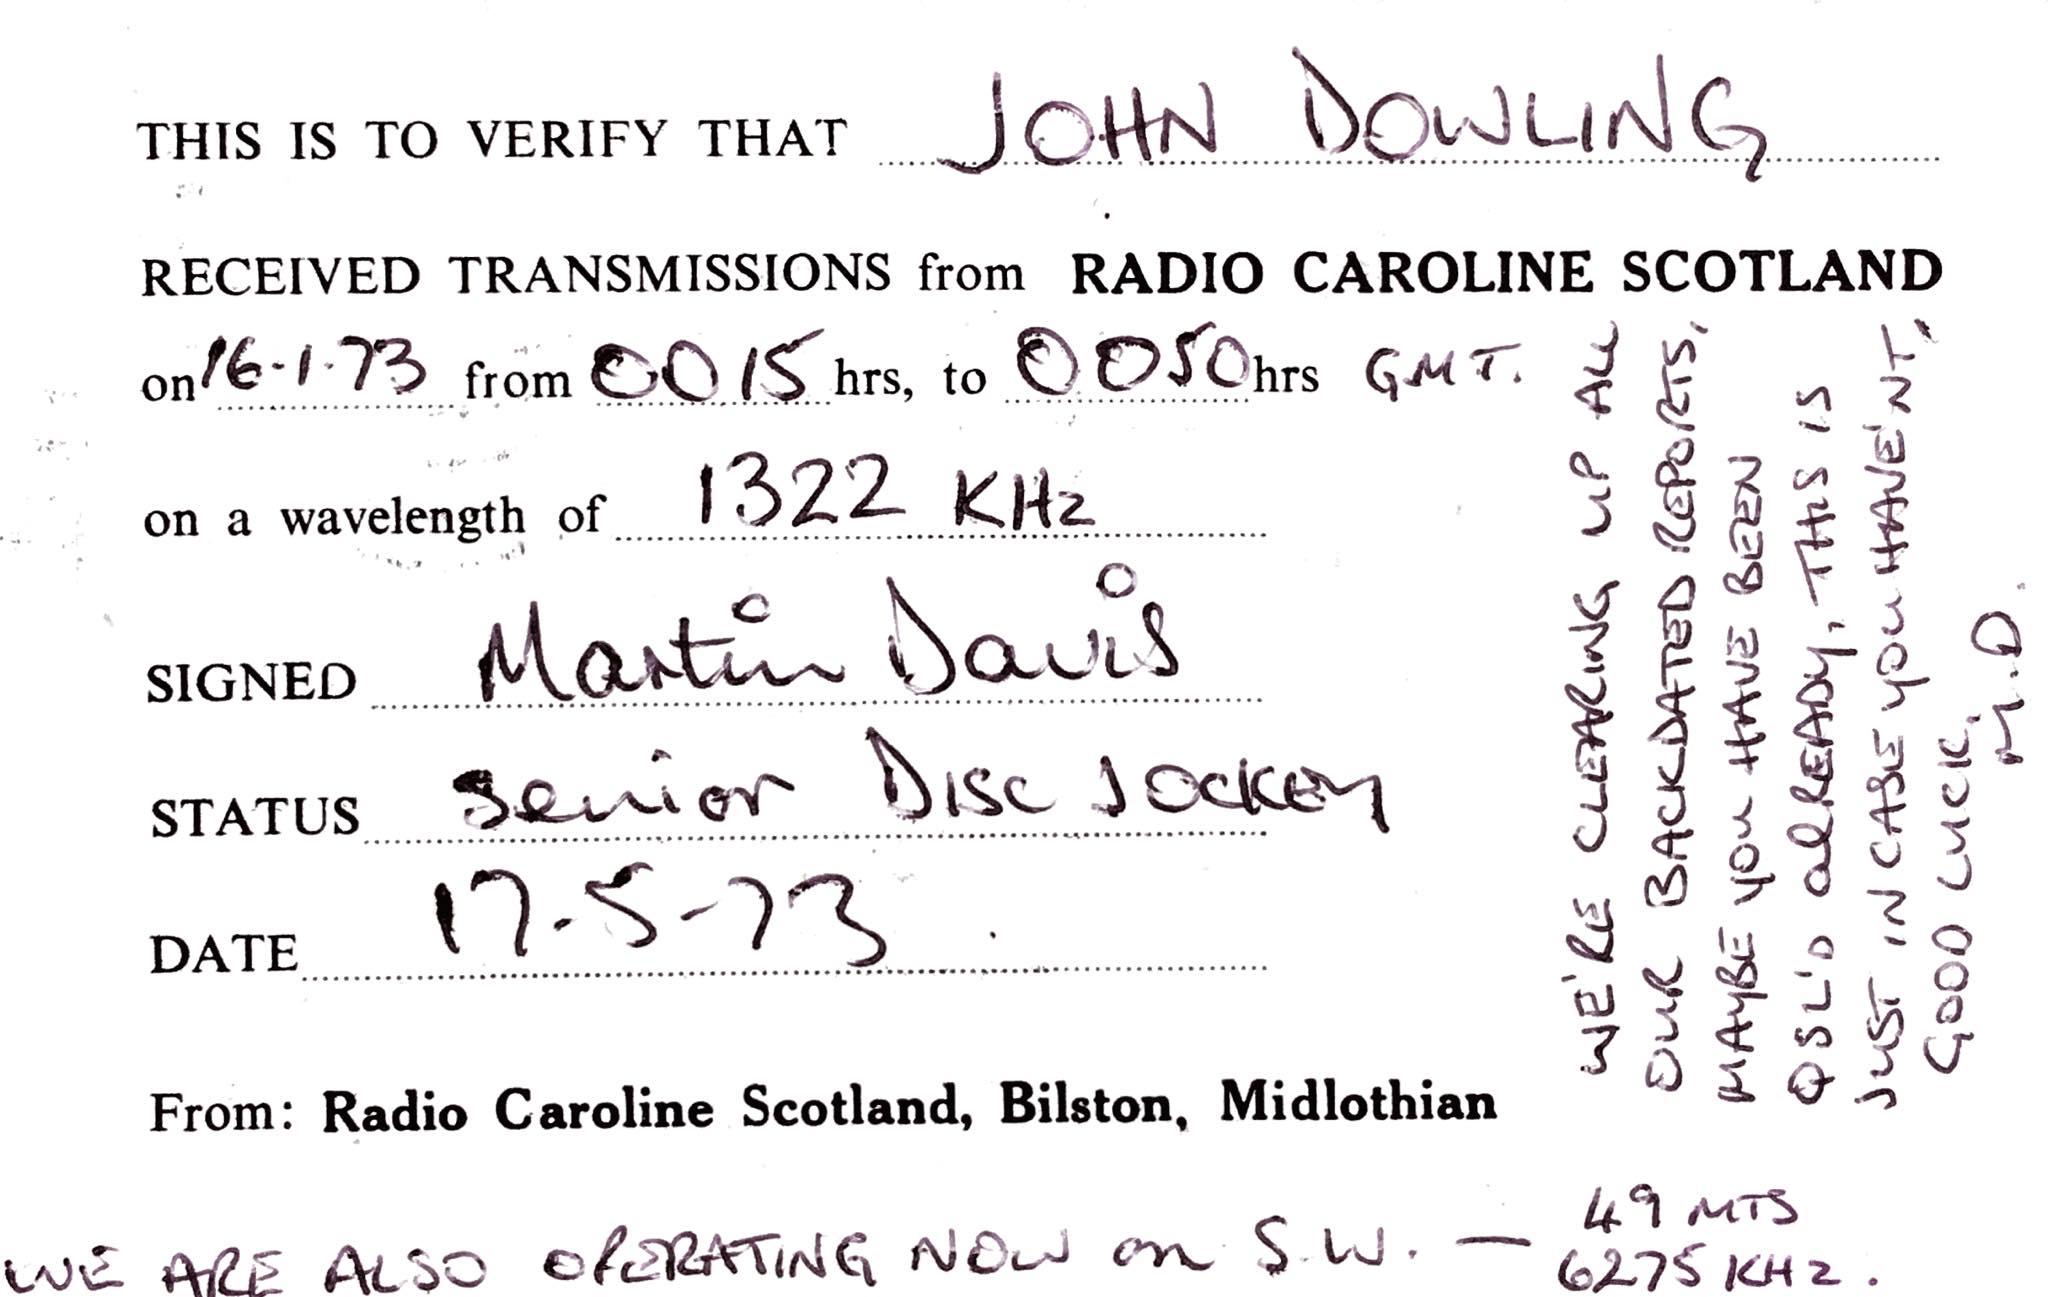 THIS IS TO VERIFY THAT JOHN DOWLING
RECEIVED TRANSMISSIONS from RADIO CAROLINE SCOTLAND
on 16-1-73 from 0015 hrs, to 0050 hrs GMT.
on a wavelength of 1322 KHz
SIGNED Martin Davis
STATUS Senior Disc Jockey
DATE 17-5-73
From: Radio Caroline Scotland, Bilston, Midlothian
WE ARE ALSO OPERATING NOW on S.W. — 49 MTS
6275 KHz.
WE'RE CLEARING UP ALL
OUR BACKDATED REPORTS,
MAYBE YOU HAVE BEEN
QSL'D alREADY, THIS IS
JUST IN CASE YOU HAVE'NT.
GOOD LUCK,
M.D.